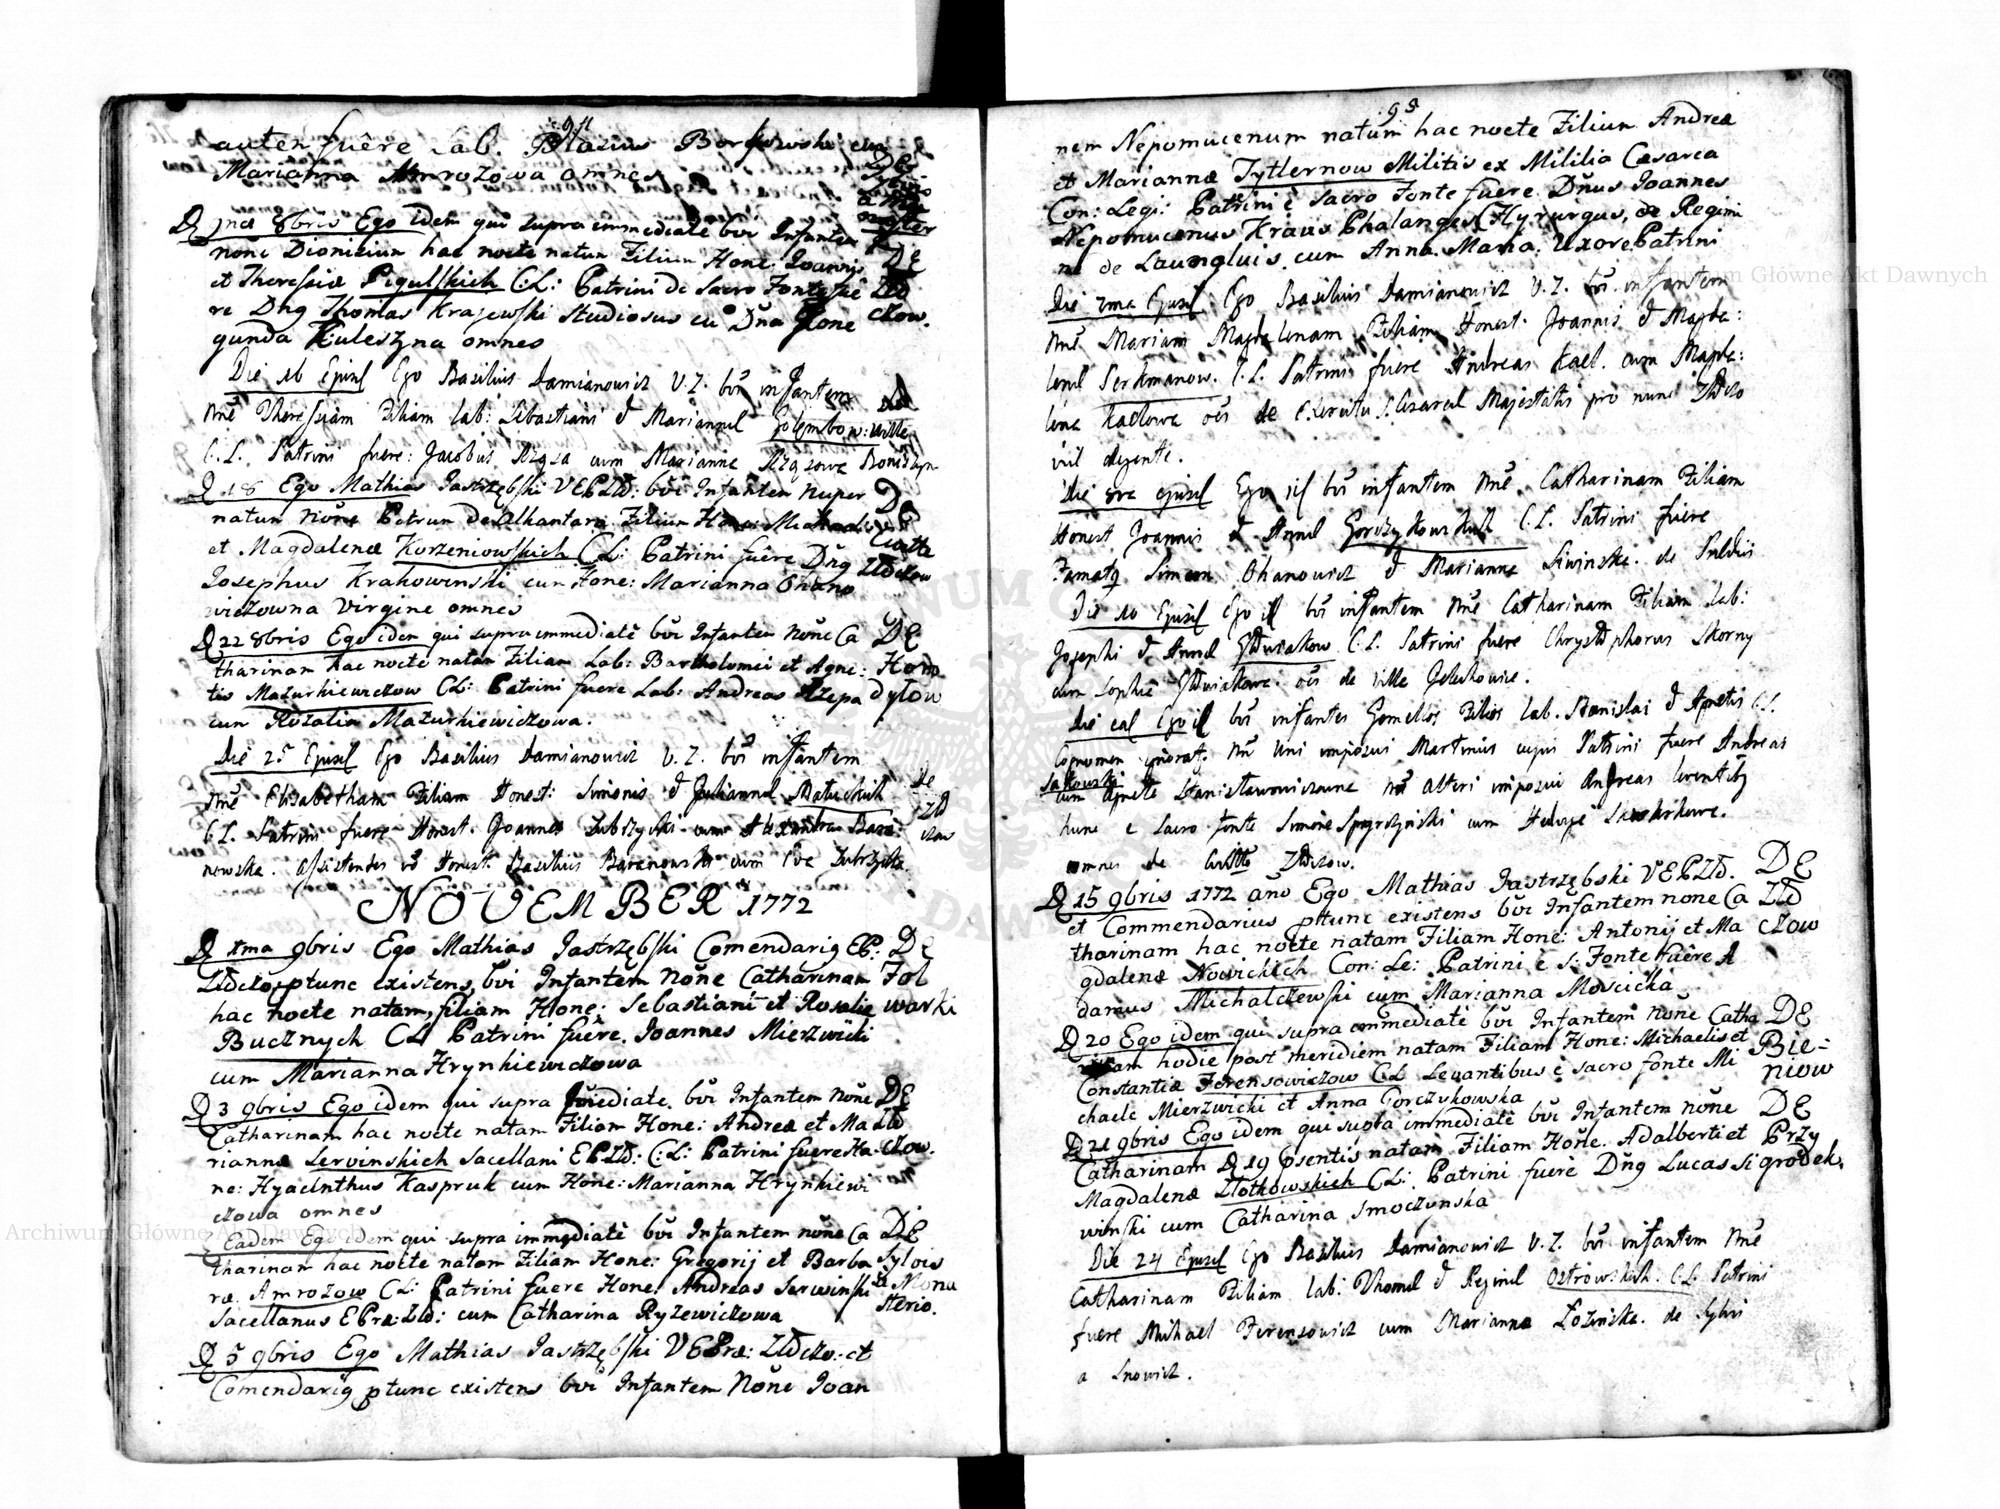 94
autem fuêre Lab. Blasius Borkowski cum
Marianna Mrozowa omnes
D 8bris Ego idem qui supra immediatè bvi Infantem
none Dionizium hac nocte natum Filium Hone: Joannis
et Theresiæ Pigulskich C:L: Patrini de Sacro Fonte fuê
re Dng Thomas Krajewski Studiosus cū Dña
gunda Kuleszyna omnes
DE
Zło
czow.
Die 16 Ejusd Ego Basilius Damianowicz V.Z. bvi infantem
nne Theressiam Filiam lab: Sebastiani & Mariannæ Golembiow:
C.L. Patrini fuere: Jacobus cum Marianna
D 18 Ego Mathias Jastrzębski VEPZłb: bvi Infantem nuper
natum Nône Petrum de Alkantara Filium Hone: Michaelis
et Magdalenæ Korzeniowskich C:L: Patrini fuêre Dng
Josephus Krakowinski cum Hone: Marianna Ohano
wiczowna Virgine omnes
DE
Civitte
Złoczow
D 22 8bris Ego idem qui supra immediatè bvi Infantem nône Ca
tharinam hac nocte natam Filiam Lab: Bartholomei et Agne:
tis Mazurkiewiczow CL: Patrini fuere Lab: Andreas Rzepa
cum Rozalia Mazurkiewiczowa.
DE
Horo
dyłow
Die 25 Ejusd Ego Basilius Damianowicz V.Z. bvi infantem
nne Elisabetham Filiam Honest: Simonis & Juliannæ
C.L. Patrini fuere Honest. Joannes Zubrzycki cum Alexandra Bara:
nowska. Assistentes Honest: Basilius Baranowski cum Eva Zubrzycka.
De
Zło
czow
NOVEMBER 1772
D 1ma 9bris Ego Mathias Jastrzębski Comendarig EP:
Złoczo: ptunc existens, bvi Infantem Nône Catharinam
hac nocte natam, filiam Hone: Sebastiani et Rosalie
Bucznych CL Patrini fuêre. Joannes Mierzwicki
cum Marianna Hrynkiewiczowa
DE
Fol
warki
D 3 9bris Ego idem qui supra imediate. bvi Infantem nône
Catharinam hac nocte natam Filiam Hone: Andreæ et Ma
riannæ Serwinskich Sacellani EPZłb: C:L: Patrini fuere Ho
ne: Hyacinthus Kaspruk cum Hone: Marianna Hrynkiewi
czowa omnes
DE
Zło
czow.
Eadem Ego idem qui supra immediatè bvi Infantem nône Ca
tharinam hac nocte natam Filiam Hone: Gregorij et Barba
ræ. Amrozow CL: Patrini fuere Hone: Andreas Serwinski
Sacellanus EPræ:Złb: cum Catharina Ryzewiczowa
DE
Sylvis
a Mona
sterio.
D 5 9bris Ego Mathias Jastrzębski VEPræ: Złoczo: et
Comendarig ptunc existens bvi Infantem Nône Joan
95
nem Nepomucenum natum hac nocte Filium Andreæ
et Mariannæ Tytlernow Militis ex Mililia Cæsarea
Con: Legi: Patrini è sacro Fonte fuere Dñus Joannes
Nepomucenus Kraus Phalanges Chyrurgus, de Regimi
ne de Laungluis. cum Anna. Maria. Uxore Patrini
Die 7ma Ejusd: Ego Basilius Damianowicz V.Z. bvi infantem
nne Mariam Magdalenam Filiam Honest. Joannis & Magda:
lenæ Perkmanow. C.L. Patrini fuere Andreas Kaell. cum Magda:
lena Kaelowa oes de Exercitu S. Cesareæ Majestatis pro nunc Złoczo
viæ degente.
Die 8va ejusd Ego id bvi infantem nne. Catharinam Filiam
Honest Joannis & Annæ C.L. Patrini fuere
Famatg Simeon Ohanowicz & Marianna Siwinska. de
Die 10 Ejusd Ego id bvi infantem nne Catharinam Filiam Lab:
Josephi & Annæ C.L. Patrini fuere Chrystophorus Skorny
cum Sophia oes de Ville Jelechowice.
Die ead Ego id bvi infantes Gemellos Filios lab. Stanislai & Agnetis C.L.
Cognomen ignorat. nn Uni imposui Martinus cujus Patrini fuere Andreas
Sakowski
cum Agnete Stanisławowiczowna nn Alteri imposui Andreas levantibg
hunc e Sacro fonte Simone cum Hedvige
omnes de Civitte Złoczow.
D 15 9bris 1772 año Ego Mathias Jastrzębski VEPZłb.
et Commendarius pttunc existens bvi Infantem none Ca
tharinam hac nocte natam Filiam Hone: Antonij et Ma
gdalenæ Nowickich Con: Le: Patrini è s: Fonte fuêre A
damus Michalczewski cum Marianna Moscicka
DE
Zło
czow
D 20 Ego idem qui supra immediatè bvi Infantem nône Catha
rinam hodie post meridiem natam Filiam Hone: Michaelis et
Constantiæ Ferensowiczow CL Levantibus è sacro fonte Mi
chaele Mierzwicki et Anna Gorczykowska
DE
Bie-
niow
D 21 9bris Ego idem qui supra immediatè bvi Infantem nône
Catharinam D 19 psentis natam Filiam Hone. Adalberti et
Magdalenæ Złotkowskich CL: Patrini fuerè Dng Lucas Si
winski cum Catharina Smoczynska
DE
Przy
grodek.
Die 24 Ejusd Ego Basilius Damianowicz V.Z. bvi infantem nne
Catharinam Filiam lab: Thomæ & Reginæ Ostrowskich. C.L. Patrini
fuere Michael Ferensowicz cum Marianna Łozinska. de Sylvi
a Snowicz.
Archiwum Główne Akt Dawnych
Archiwum Główne Akt Dawnych